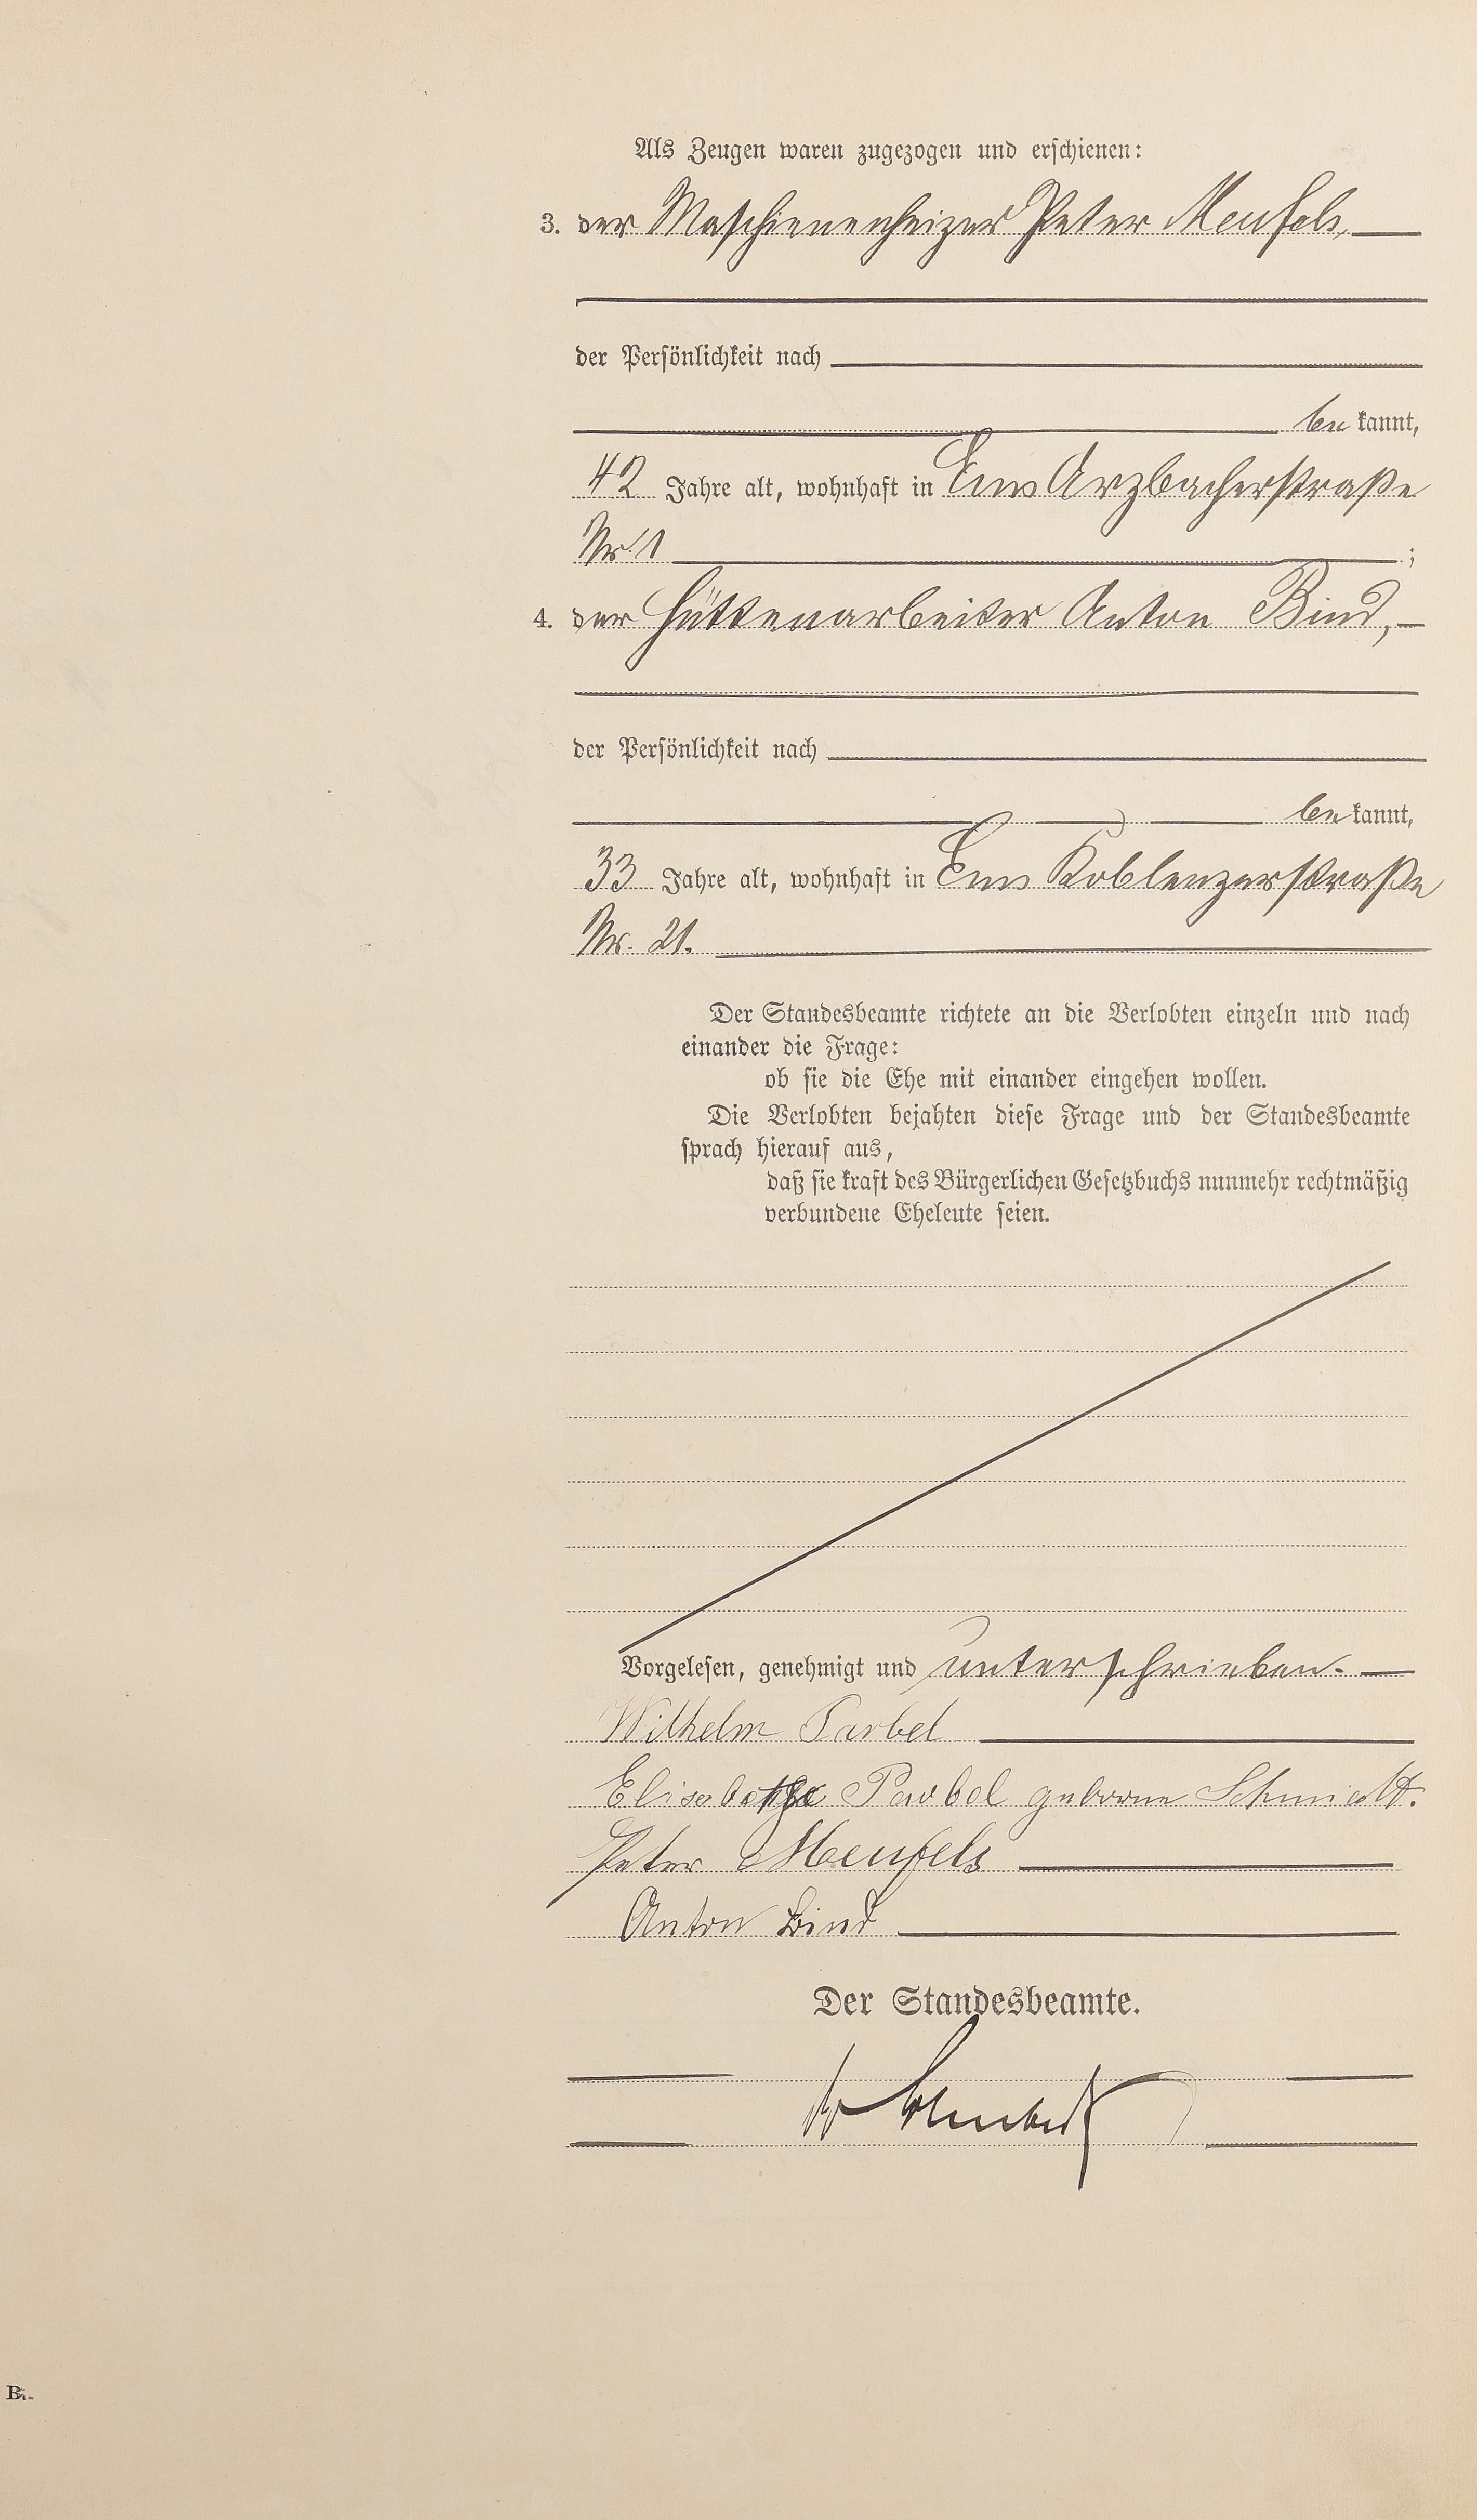 Als Zeugen waren zugezogen und erschienen:
3. der Maschienenheizer Peter Meufels,
der Persönlichkeit nach
be kannt,
42 Jahre alt, wohnhaft in Ems Arzbacherstraße
Nr. 1 ;
4. der Hüttenarbeiter Anton Bind,
der Persönlichkeit nach
be kannt,
33 Jahre alt, wohnhaft in Ems Koblenzerstraße
Nr. 21.
Der Standesbeamte richtete an die Verlobten einzeln und nach
einander die Frage:
ob sie die Ehe mit einander eingehen wollen.
Die Verlobten bejahten diese Frage und der Standesbeamte
sprach hierauf aus,
daß sie kraft des Bürgerlichen Gesetzbuchs nunmehr rechtmäßig
verbundene Eheleute seien.
Vorgelesen, genehmigt und unterschrieben.
Wilhelm Parbel
Elisabethe Parbel geborne Schmidt.
Peter Meufels
Anton Bind
Der Standesbeamte.
B.